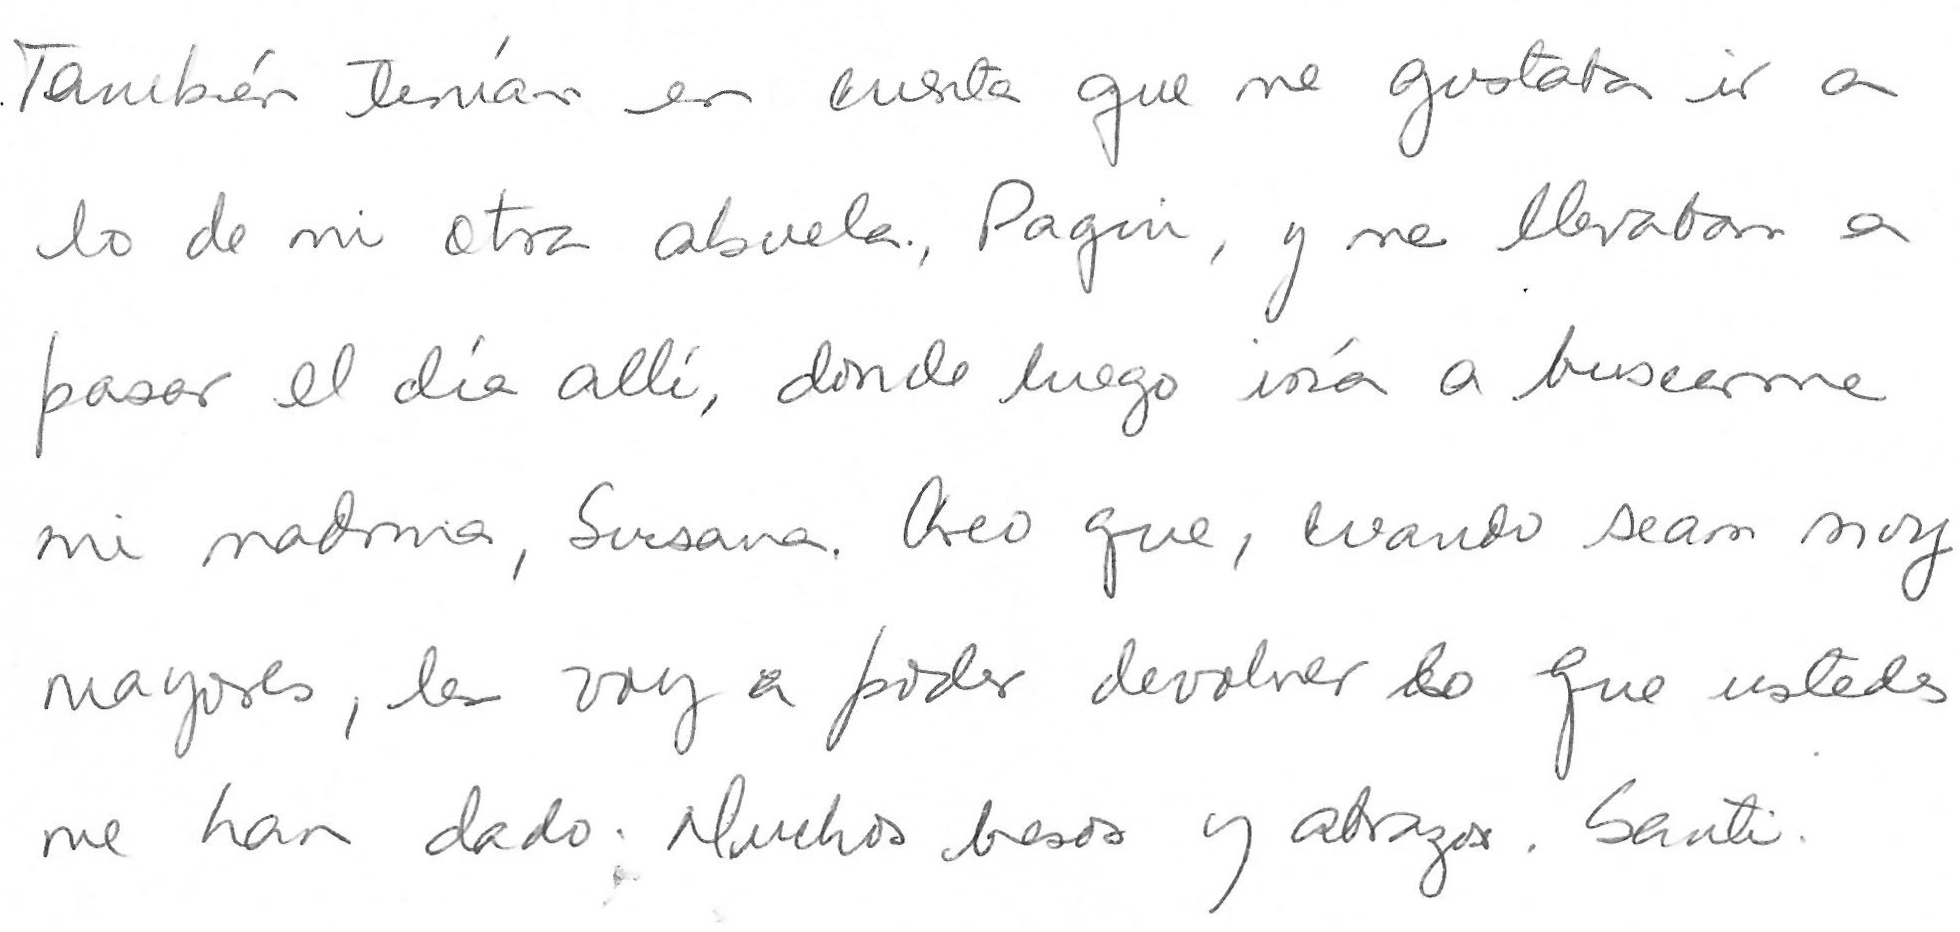 También tenían en cuenta que me gustaba ir a
lo de mi otra abuela, Pagui, y me llevaban a
pasar el día allí, donde luego iría a buscarme
mi madrina, Susana. Creo que, cuando sean muy
mayores, les voy a poder devolver lo que ustedes
me han dado. Muchos besos y abrazos. Santi.